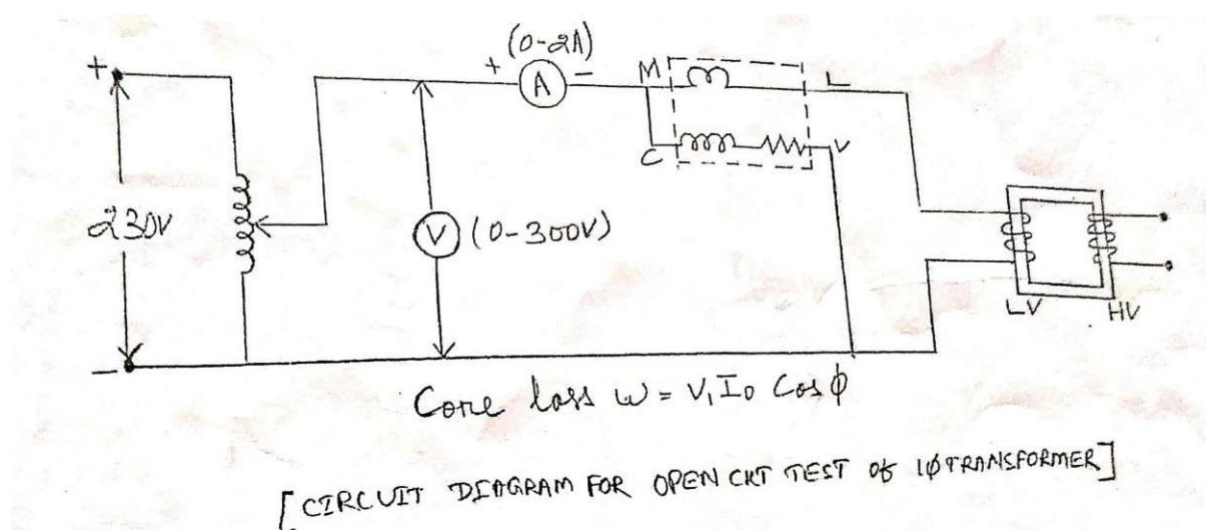 (0-2A)
+
+ A -
M L
C V
230V
V (0-300V)
-
LV HV
Core loss W = V₁ I₀ Cos ϕ
[CIRCUIT DIAGRAM FOR OPEN CKT TEST OF 1ϕ TRANSFORMER]